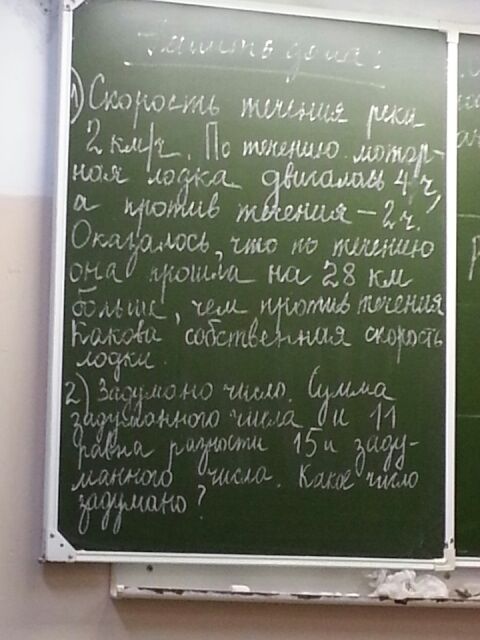 Решить дома:
1) Скорость течения река
2 км/ч. По течению мотор-
ная лодка двигалась 4 ч,
а против течения – 2 ч.
Оказалось, что по течению
она прошла на 28 км
больше, чем против течения
Какова собственная скорость
лодки.
2) Задумано число. Сумма
задуманного числа и 11
равна разности 15 и заду-
манного числа. Какое число
задумано?